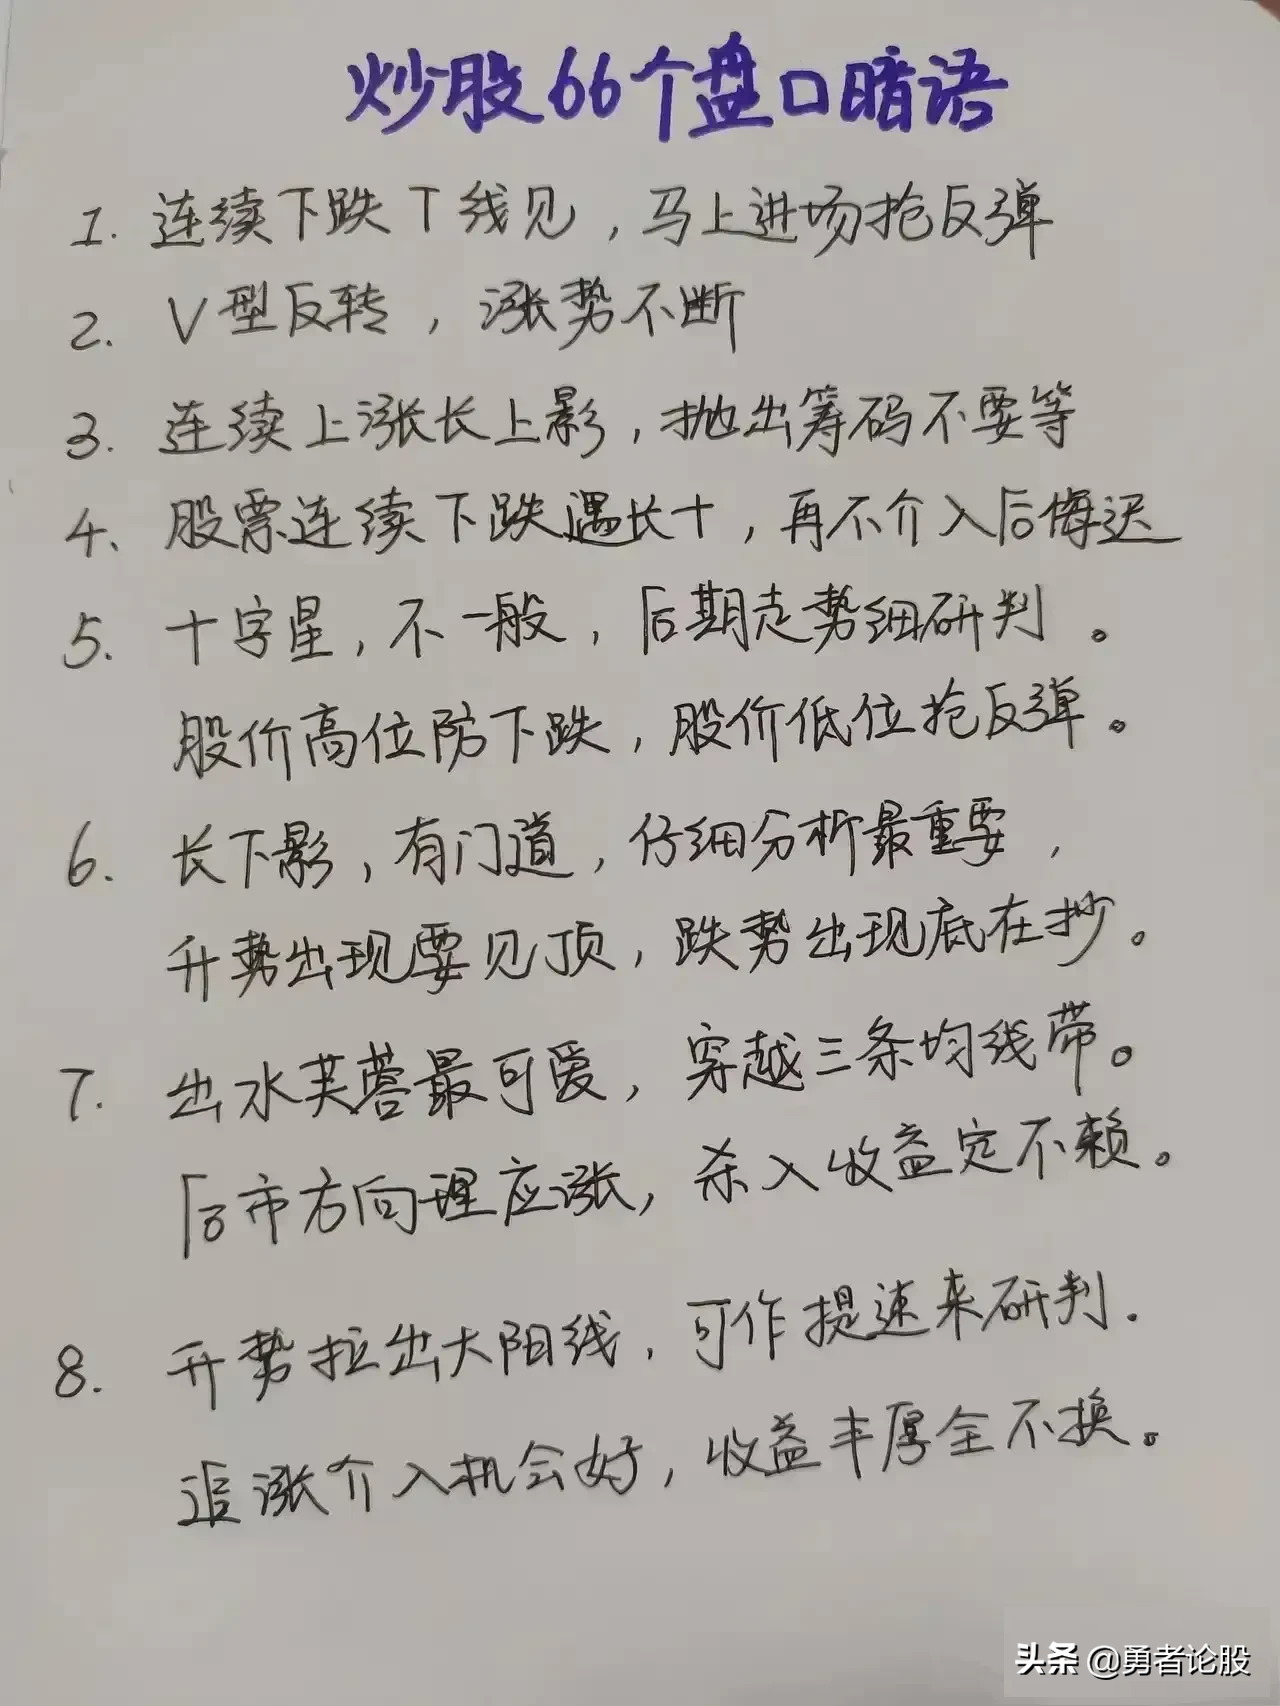 炒股66个盘口暗语
1. 连续下跌T线见，马上进场抢反弹
2. V型反转，涨势不断
3. 连续上涨长上影，抛出筹码不要等
4、股票连续下跌遇长十，再不介入后悔迟
5. 十字星，不一般，后期走势细研判。
股价高位防下跌，股价低位抢反弹。
6. 长下影，有门道，仔细分析最重要，
升势出现要见顶，跌势出现底在抄。
7. 出水芙蓉最可爱，穿越三条均线带。
后市方向理应涨，杀入收益定不赖。
8. 升势拉出大阳线，可作提速来研判.
追涨介入机会好，收益丰厚全不换。
头条 @勇者论股